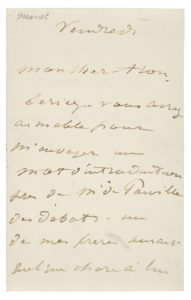 Manet
Vendredi
mon cher ami,
Seriez-vous assez
aimable pour
m'envoyer un
mot d'introduction
près de Mr de Parville
des débats. un
de mes frères aurait
quelque chose à lui